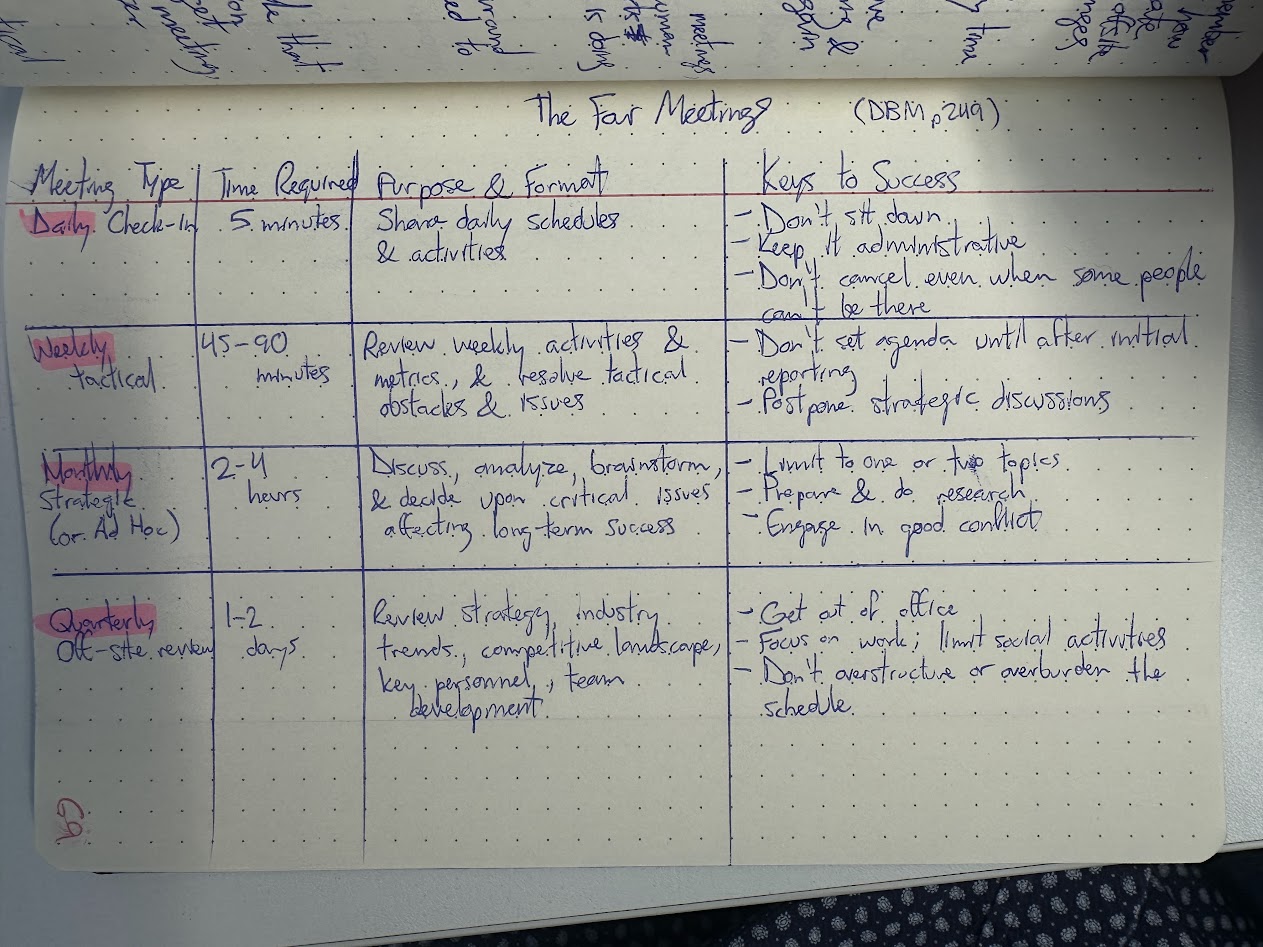 The Four Meetings (DBM, p249)
Meeting Type | Time Required | Purpose & Format | Keys to Success
Daily Check-In
5 minutes
Share daily schedules
& activities
- Don't sit down
- Keep it administrative
- Don't cancel even when some people
can't be there
Weekly
tactical
45-90
minutes
Review weekly activities &
metrics, & resolve tactical
obstacles & issues
- Don't set agenda until after initial
reporting
- Postpone strategic discussions
Monthly
Strategic
(or Ad Hoc)
2-4
hours
Discuss, analyze, brainstorm,
& decide upon critical issues
affecting long-term success
- Limit to one or two topics
- Prepare & do research
- Engage in good conflict
Quarterly
Off-site review
1-2
days
Review strategy, industry
trends, competitive landscape,
key personnel, team
development
- Get out of office
- Focus on work; limit social activities
- Don't overstructure or overburden the
schedule.
69